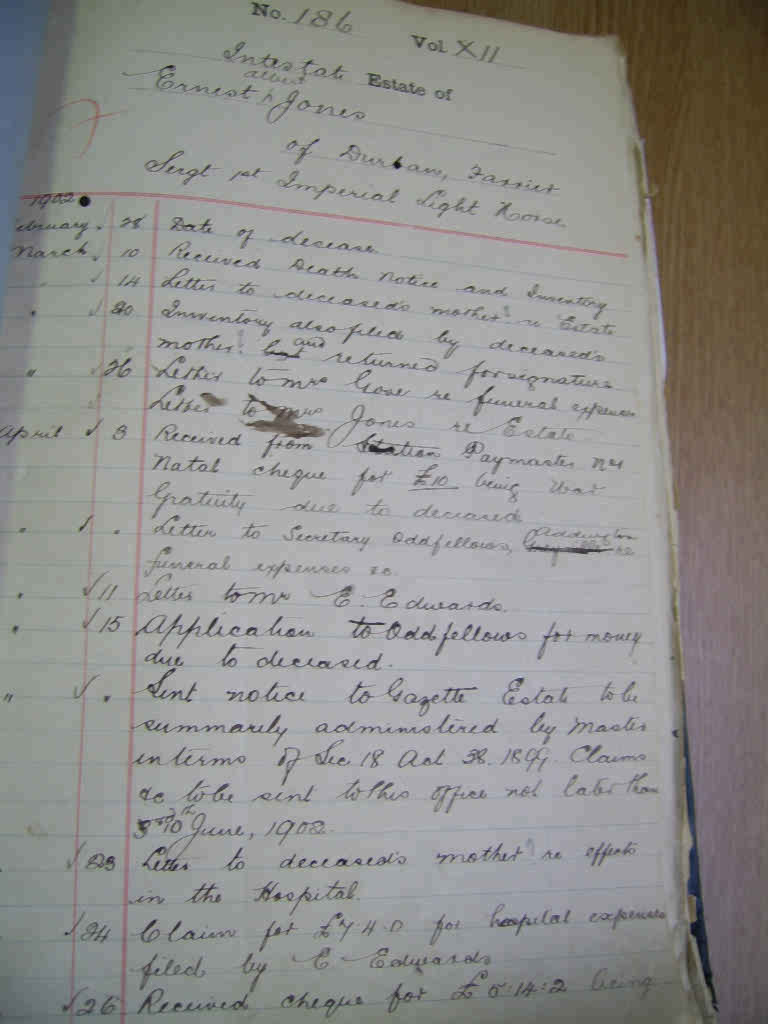 No. 186 Vol XII
Intestate Estate of
Albert
Ernest ^ Jones
of Durban, Farrier
Sergt 1st Imperial Light Horse
1902
February 28 Date of decease
March 10 Received Death Notice and Inventory
" 14 Letter to deceased's mother re Estate
" 20 Inventory also filed by deceased's
mother but and returned for signature
" 26 Letter to Mrs Gove re funeral expenses
Letter to Mrs Jones re Estate
April 3 Received from Station Paymaster
Natal cheque for £10 being War
Gratuity due to deceased
" " Letter to Secretary Oddfellows, Addington re
funeral expenses &c.
" 11 Letter to Mr E. Edwards.
" 15 Application to Oddfellows for money
due to deceased.
" " Sent notice to Gazette Estate to be
summarily administered by Master
in terms of Sec 18 Act 38. 1899. Claims
&c to be sent to this office not later than
10th June, 1902.
23 Letter to deceased's mother re effects
in the Hospital.
24 Claim for £7.4.0 for hospital expenses
filed by E Edwards
26 Received cheque for £5:14:2 being